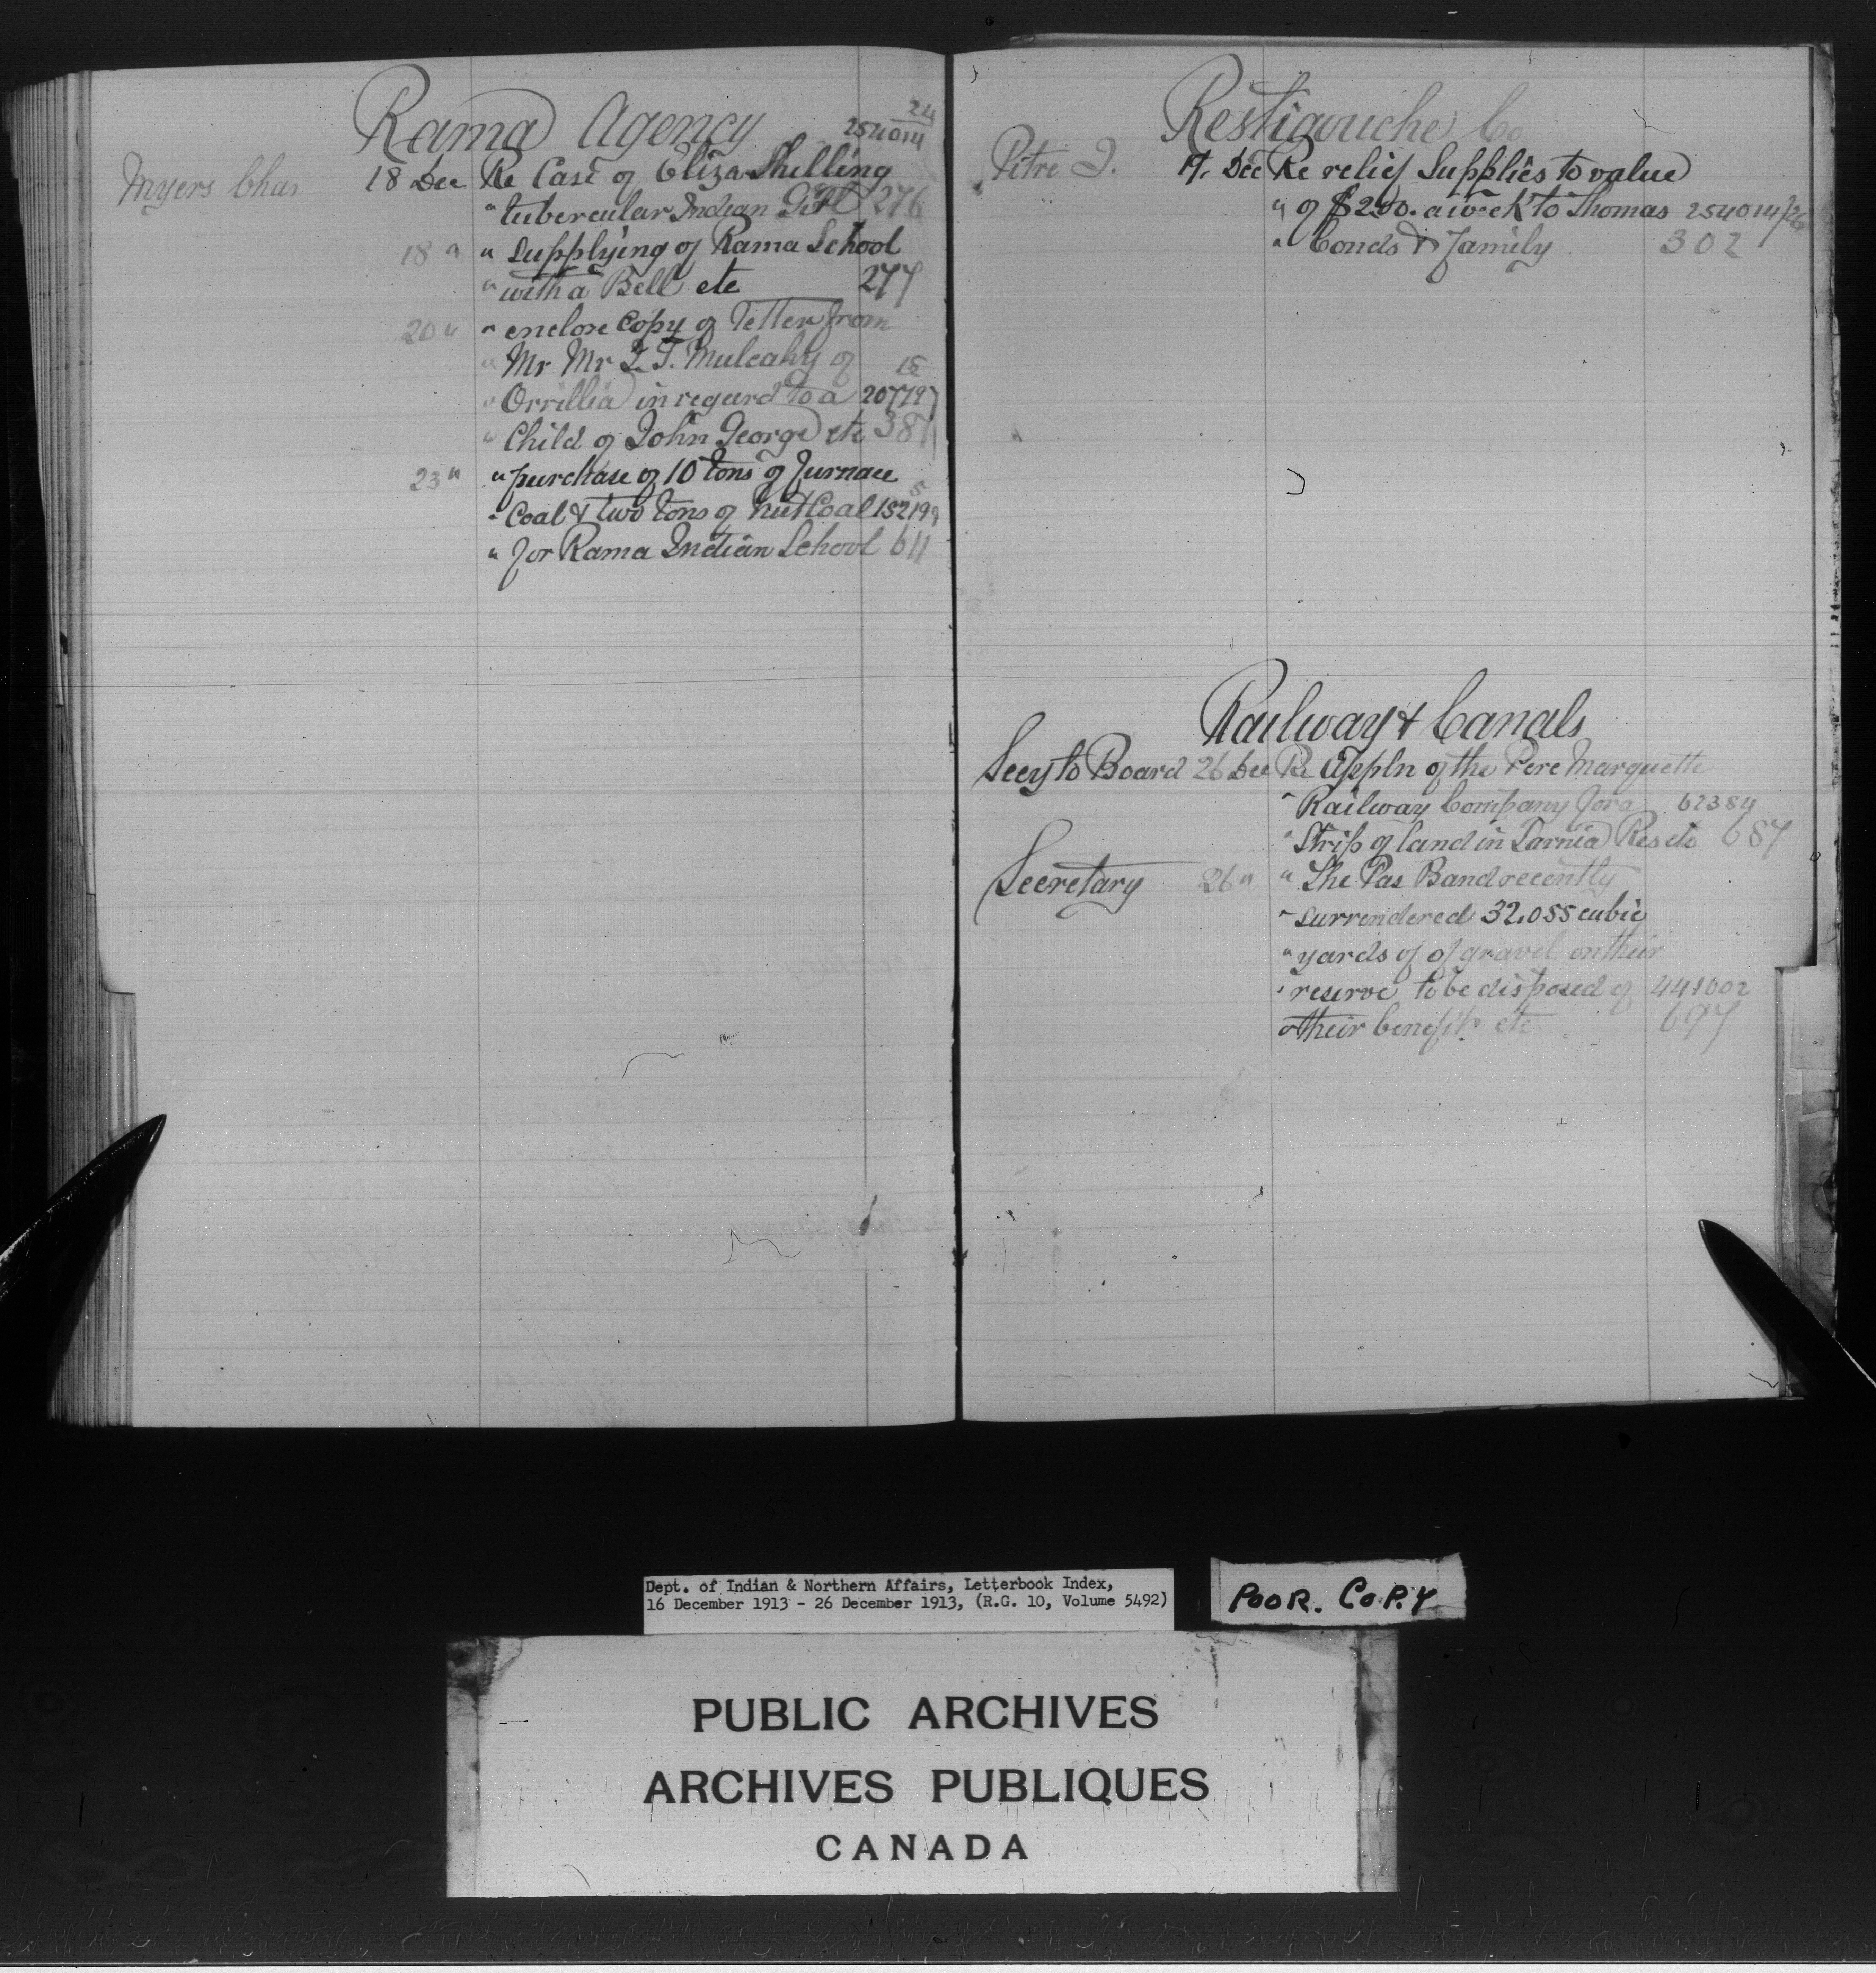 Rama Agency 254014 24
Myers Chas 18 Dec Re Case of Eliza Shilling
" tubercular Indian Girl 276
18 " " Supplying of Rama School
" with a Bell etc 277
20 " " enclose Copy of letter from
" Mr Mr T. Mulcahy of 15
" Orrillia in regard to a 207797
" Child of John George etc 387
23 " " purchase of 10 tons of furnace
" Coal & two tons of Nut Coal 152199 5
" for Rama Indian School 611
Restigouche Co
Pitre J. 17. Dec Re relief Supplies to value
" of $2.00. a week to Thomas 254014/26
" Conds & family 302
Railway & Canals
Secy to Board 26 Dec Re Appln of the Pere Marquette
" Railway Company for a 62384
" Strip of land in Sarnia Res etc 687
Secretary 26 " " The Pas Band recently
" surrendered 32,055 cubic
" yards of of gravel on their
" reserve to be disposed of 441002
" their benefit etc 697
Dept. of Indian & Northern Affairs, Letterbook Index,
16 December 1913 - 26 December 1913, (R.G. 10, Volume 5492)
POOR. COPY
PUBLIC ARCHIVES
ARCHIVES PUBLIQUES
CANADA